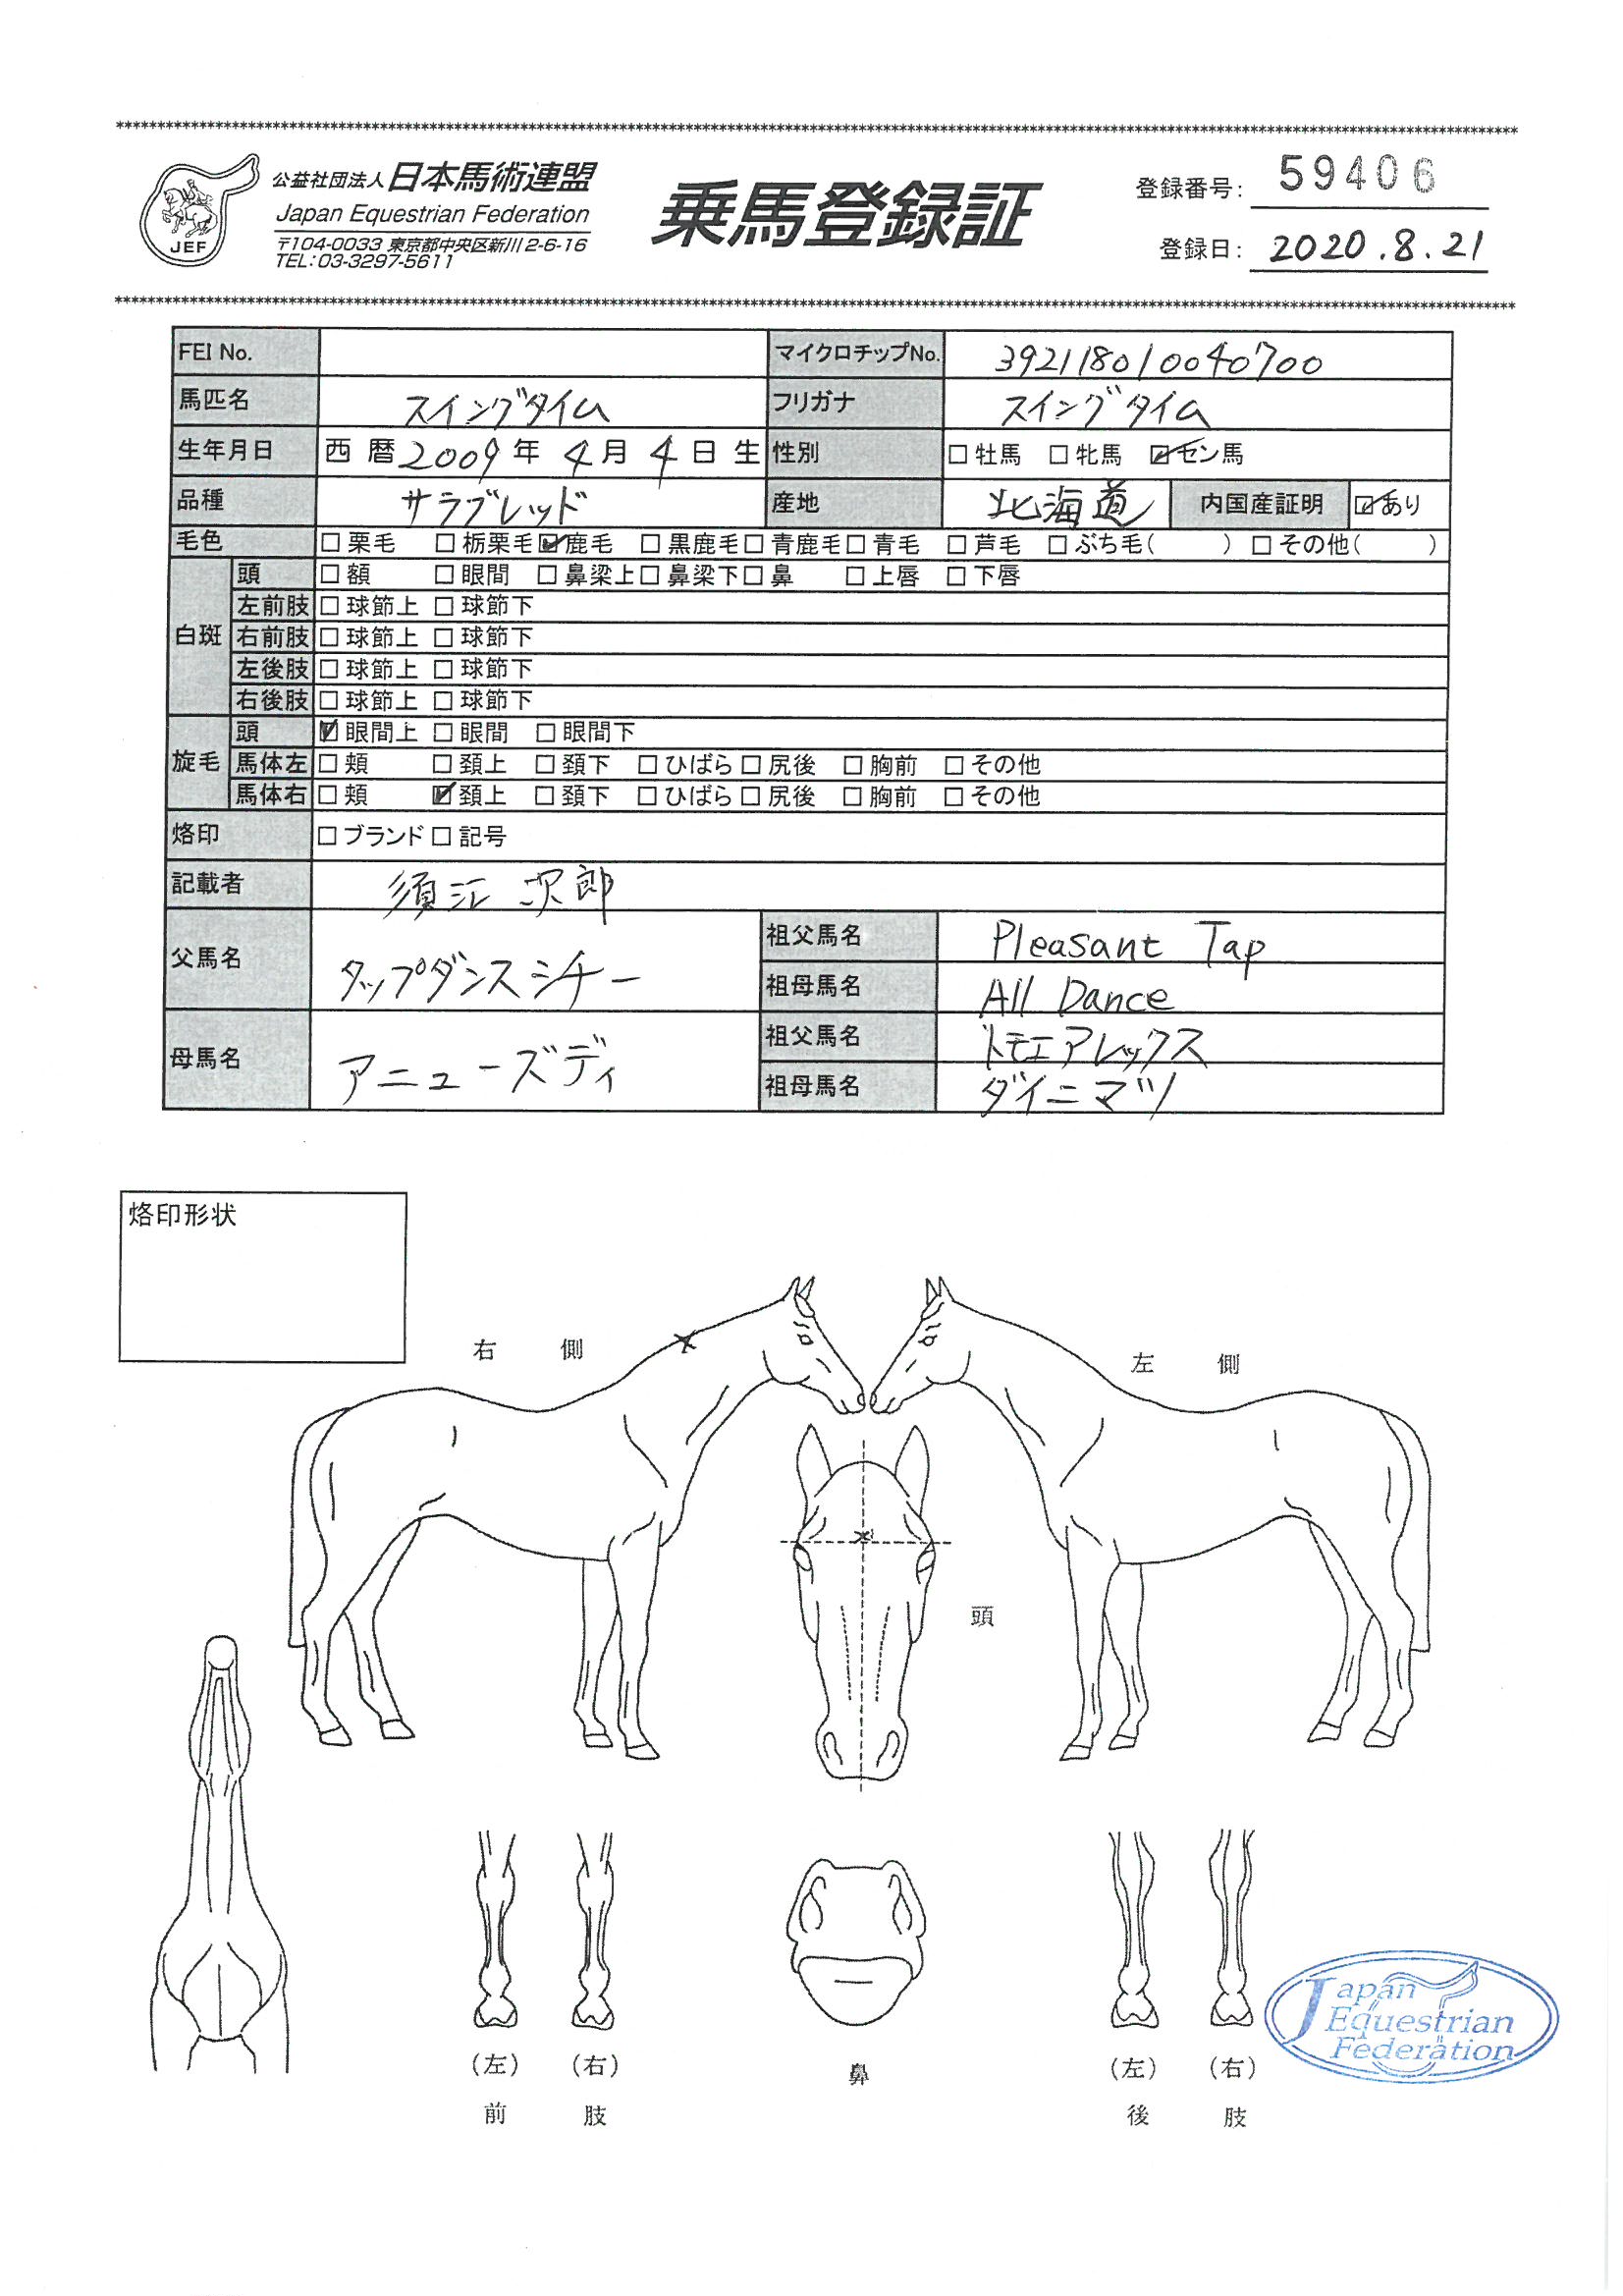 公益社団法人 日本馬術連盟
Japan Equestrian Federation
〒104-0033 東京都中央区新川2-6-16
TEL:03-3297-5611
JEF
乗馬登録証
登録番号: 59406
登録日: 2020.8.21
FEI No. マイクロチップNo. 392118010040700
馬匹名 スイングタイム フリガナ スイングタイム
生年月日 西暦2009年4月4日生 性別 □牡馬 □牝馬 ☑セン馬
品種 サラブレッド 産地 北海道 内国産証明 ☑あり
毛色 □栗毛 □栃栗毛 ☑鹿毛 □黒鹿毛 □青鹿毛 □青毛 □芦毛 □ぶち毛( ) □その他( )
白斑
頭 □額 □眼間 □鼻梁上 □鼻梁下 □鼻 □上唇 □下唇
左前肢 □球節上 □球節下
右前肢 □球節上 □球節下
左後肢 □球節上 □球節下
右後肢 □球節上 □球節下
旋毛
頭 ☑眼間上 □眼間 □眼間下
馬体左 □頬 □頚上 □頚下 □ひばら □尻後 □胸前 □その他
馬体右 □頬 ☑頚上 □頚下 □ひばら □尻後 □胸前 □その他
烙印 □ブランド □記号
記載者 須江 次郎
父馬名 タップダンスシチー
祖父馬名 Pleasant Tap
祖母馬名 All Dance
母馬名 アニューズディ
祖父馬名 トモエアレックス
祖母馬名 ダイニマツ
烙印形状
右側
左側
頭
(左) (右)
前肢
鼻
(左) (右)
後肢
Japan
Equestrian
Federation